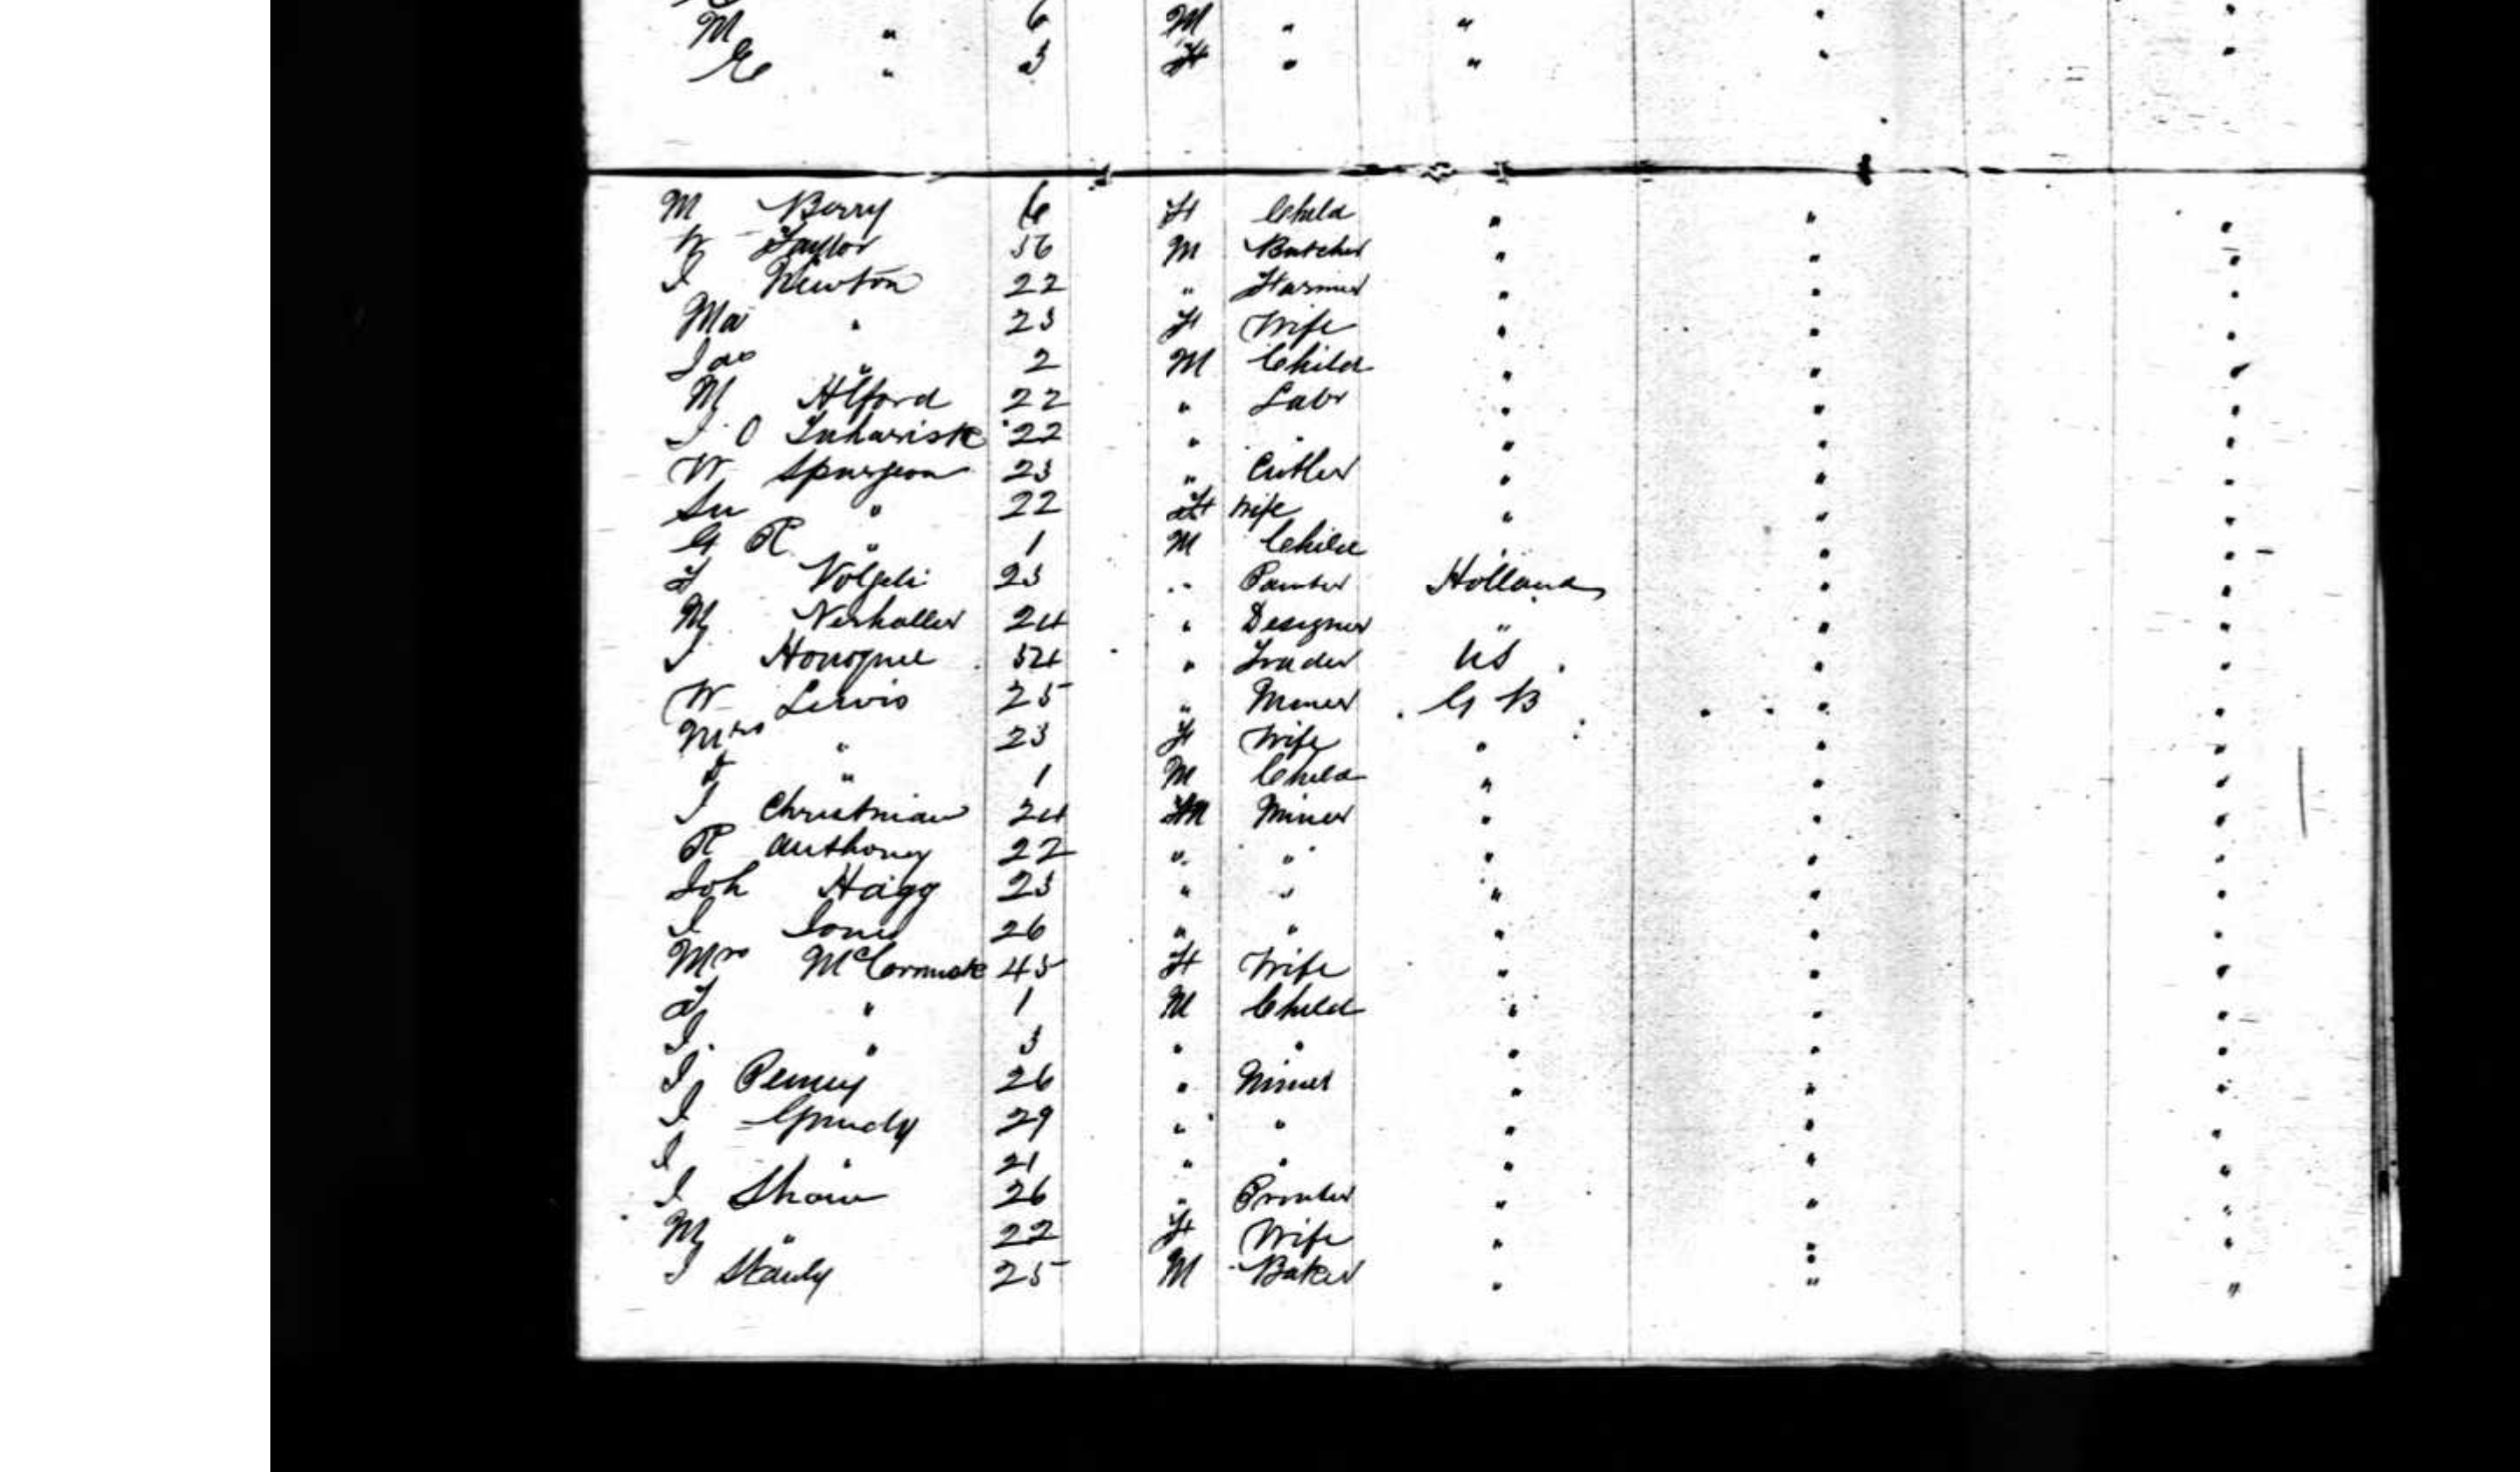 M " 6 M " " " "
E " 3 F " " " "
M Berry 6 F Child " " "
W Taylor 36 M Butcher " " "
I Newton 22 " Farmer " " "
Ma " 23 F Wife " " "
Jas " 2 M Child " " "
M Alford 22 " Labr " " "
I O 22 " " " " "
W Spurgeon 23 " Cutler " " "
Su " 22 F Wife " " "
G R " 1 M Child " " "
F Volgeli 23 " Painter Holland " "
M 24 " Designer " " "
I 34 " Trader US " "
W Lewis 25 " Miner G B " "
Mrs " 23 F Wife " " "
F " 1 M Child " " "
I Christman 24 M Miner " " "
R Anthony 22 " " " " "
Joh Hagg 23 " " " " "
I Jones 26 " " " " "
Mrs McCormick 45 F Wife " " "
F " 1 M Child " " "
I " 3 " " " " "
I Penny 26 " Miner " " "
I Grundy 29 " " " " "
I " 21 " " " " "
I Shaw 26 " Printer " " "
M " 22 F Wife " " "
I Standy 25 M Baker " " "